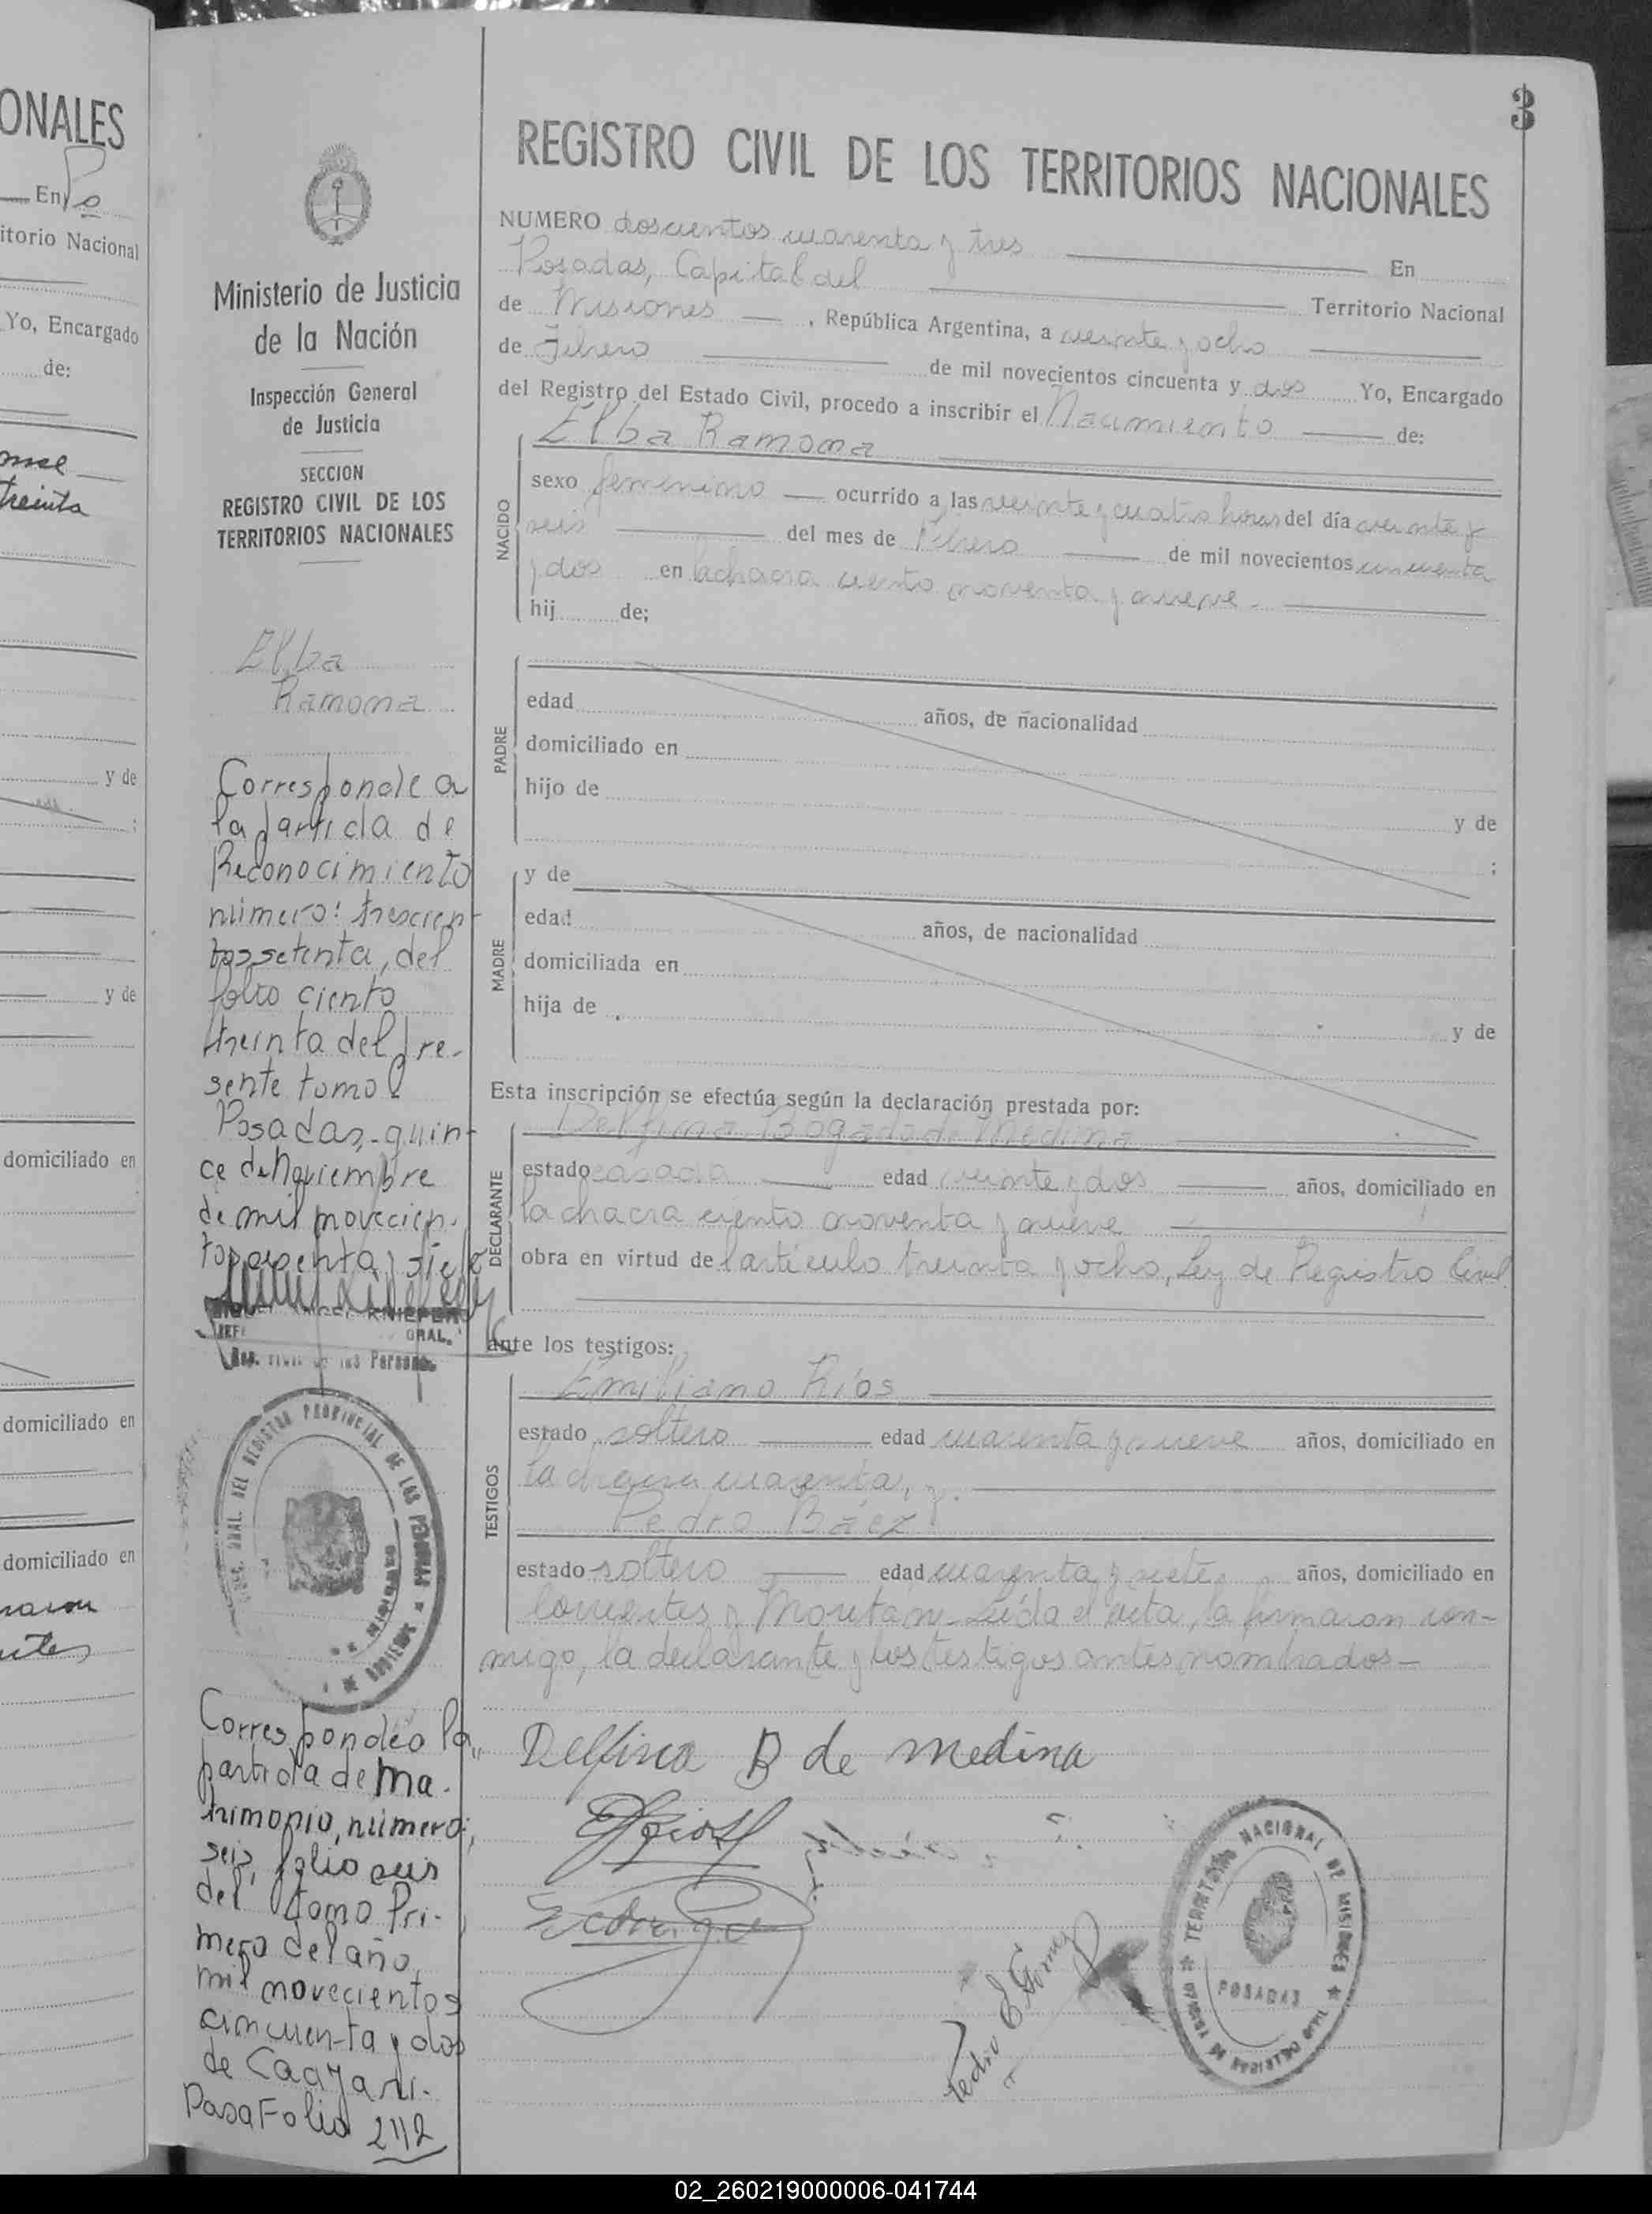 ONALES
En Po
itorio Nacional
Yo, Encargado
de:
treinta
y de
y de
domiciliado en
domiciliado en
domiciliado en
3
Ministerio de Justicia
de la Nación
Inspección General
de Justicia
SECCION
REGISTRO CIVIL DE LOS
TERRITORIOS NACIONALES
Elba
Ramona
Corresponde a
la partida de
Reconocimiento
número: trescien-
tos setenta, del
folio ciento
treinta del pre-
sente tomo
Posadas, quin-
ce de Noviembre
de mil novecien-
tos
GRAL.
Reg. Civil de las Personas
DEL REGISTRO PROVINCIAL DE LAS PERSONAS
MISIONES
Corresponde a la
partida de Ma-
trimonio, número
seis, folio seis
del tomo Pri-
mero del año
mil novecientos
cincuenta y dos
de Caayari.
Pasa Folio 242
REGISTRO CIVIL DE LOS TERRITORIOS NACIONALES
NUMERO doscientos cuarenta y tres En
Posadas, Capital del Territorio Nacional
de Misiones , República Argentina, a veinte y ocho
de Febrero de mil novecientos cincuenta y dos Yo, Encargado
del Registro del Estado Civil, procedo a inscribir el Nacimiento de:
Elba Ramona
NACIDO
sexo femenino ocurrido a las veinte y cuatro horas del día veinte y
seis del mes de Febrero de mil novecientos cincuenta
y dos en la chacra ciento noventa y nueve.
hij de;
PADRE
edad años, de nacionalidad
domiciliado en
hijo de
y de
;
MADRE
y de
edad años, de nacionalidad
domiciliada en
hija de
y de
Esta inscripción se efectúa según la declaración prestada por:
Delfina Bogado de Medina
DECLARANTE
estado casada edad veinte y dos años, domiciliado en
la chacra ciento noventa y nueve
obra en virtud del artículo treinta y ocho, Ley de Registro Civil
ante los testigos:
Emiliano Ríos
TESTIGOS
estado soltero edad cuarenta y nueve años, domiciliado en
la chacra cuarenta, y.
Pedro Báez
estado soltero edad cuarenta y siete, años, domiciliado en
Corrientes y Moutan- Leída el acta, la firmaron con-
migo, la declarante y los testigos antes nombrados-
Delfina B de medina
ERios
Pedro E Gomez
TERRITORIO NACIONAL DE MISIONES
POSADAS
02_260219000006-041744